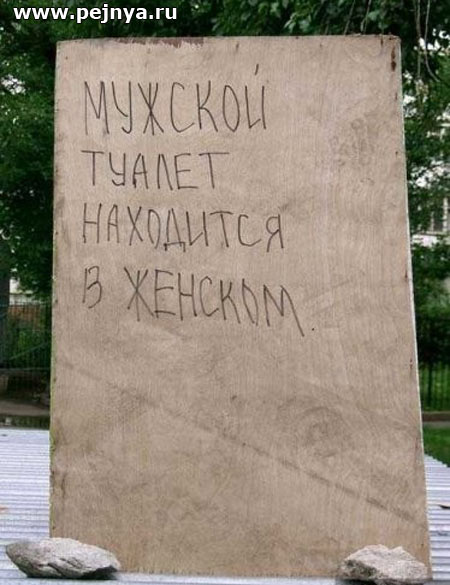 www.pejnya.ru
МУЖСКОЙ
ТУАЛЕТ
НАХОДИТСЯ
В ЖЕНСКОМ.